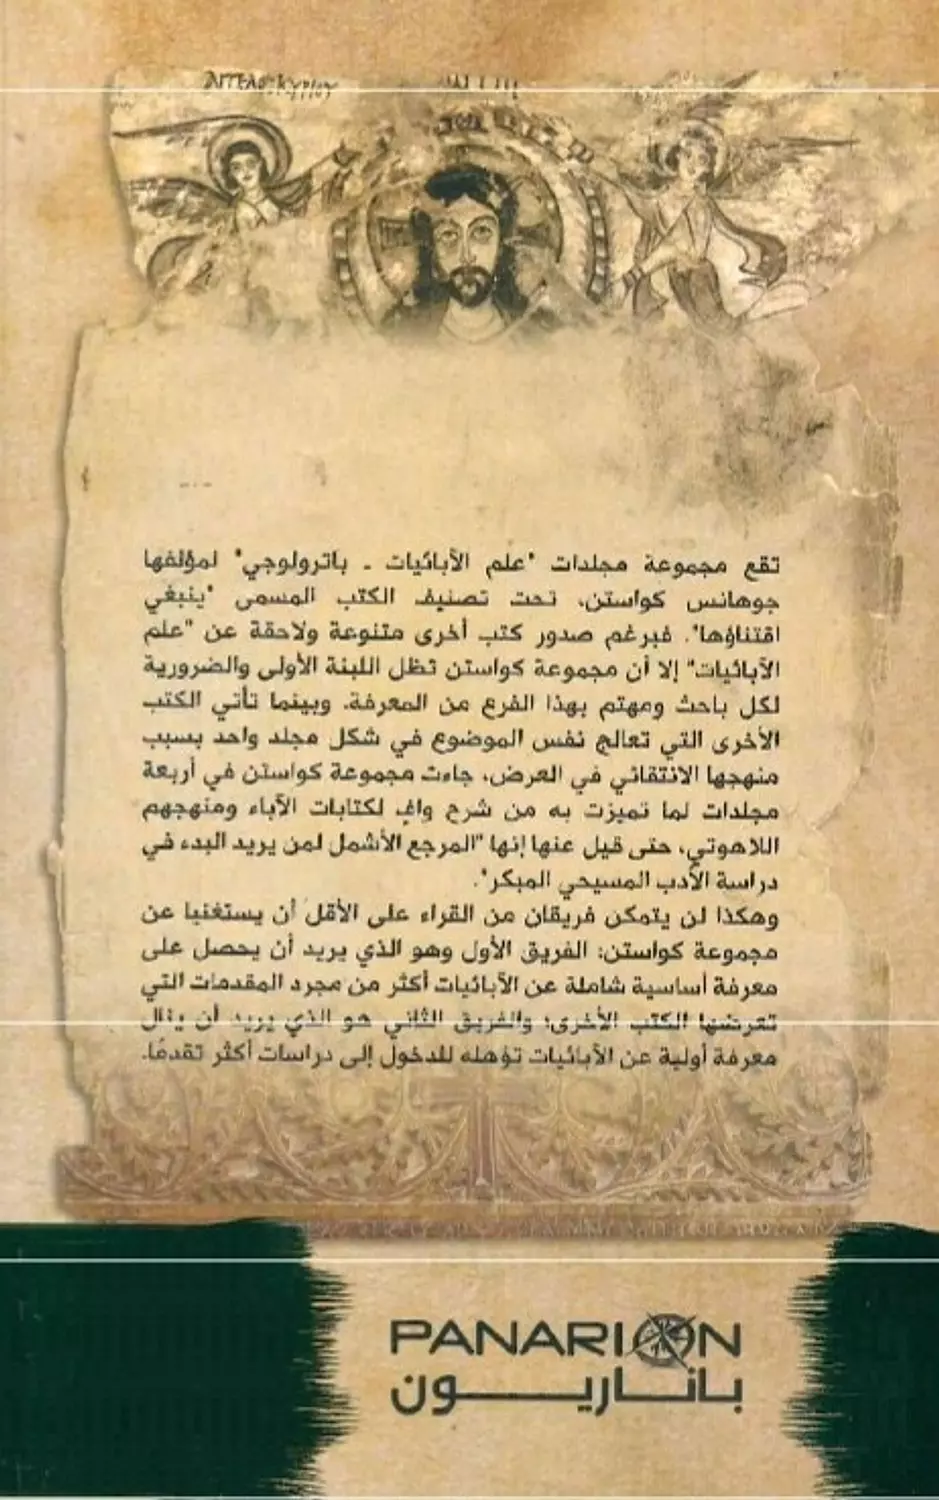 ΑΓΓΕΛΟϹ ΚΥΡΙΟΥ
تقع مجموعة مجلدات "علم الأبائيات - باترولوجي" لمؤلفها
جوهانس كواستن، تحت تصنيف الكتب المسمى "ينبغي
اقتناؤها". فبرغم صدور كتب أخرى متنوعة ولاحقة عن "علم
الآبائيات" إلا أن مجموعة كواستن تظل اللبنة الأولى والضرورية
لكل باحث ومهتم بهذا الفرع من المعرفة. وبينما تأتي الكتب
الأخرى التي تعالج نفس الموضوع في شكل مجلد واحد بسبب
منهجها الانتقائي في العرض، جاءت مجموعة كواستن في أربعة
مجلدات لما تميزت به من شرح وافٍ لكتابات الآباء ومنهجهم
اللاهوتي، حتى قيل عنها إنها "المرجع الأشمل لمن يريد البدء في
دراسة الأدب المسيحي المبكر".
وهكذا لن يتمكن فريقان من القراء على الأقل أن يستغنيا عن
مجموعة كواستن: الفريق الأول وهو الذي يريد أن يحصل على
معرفة أساسية شاملة عن الآبائيات أكثر من مجرد المقدمات التي
تعرضها الكتب الأخرى؛ والفريق الثاني هو الذي يريد أن ينال
معرفة أولية عن الآبائيات تؤهله للدخول إلى دراسات أكثر تقدمًا.
PANARION
باناريون